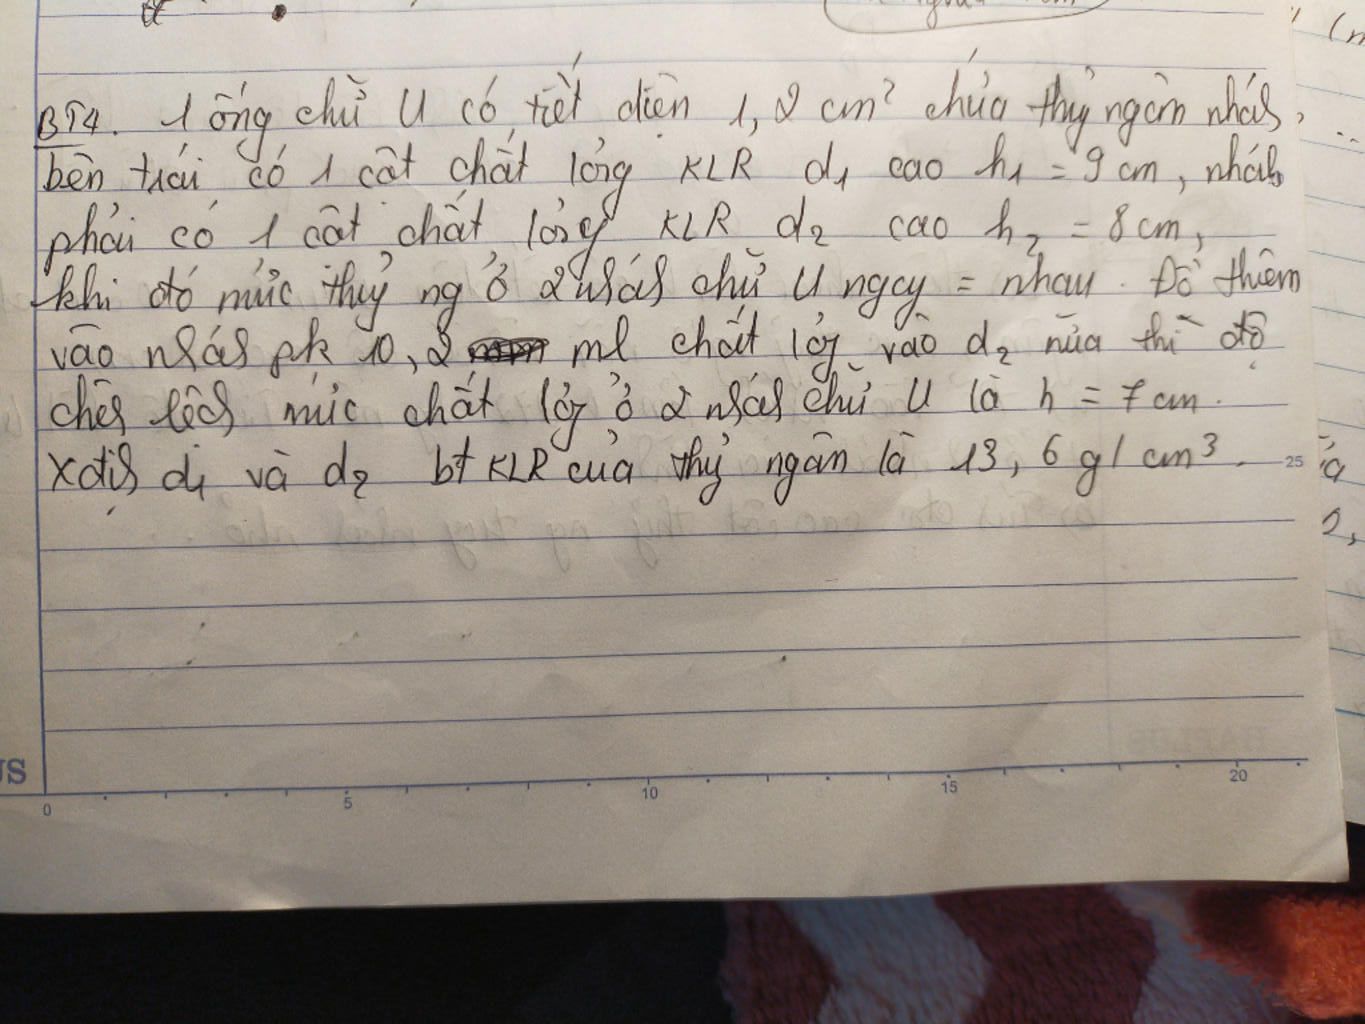 BT4. 1 ống chữ U có tiết diện 1,2 cm² chứa thủy ngân nhánh,
bên trái có 1 cột chất lỏng KLR d₁ cao h₁ = 9 cm, nhánh
phải có 1 cột chất lỏng KLR d₂ cao h₂ = 8 cm,
khi đó mức thủy ng ở 2 nhánh chữ U ngay = nhau. Đổ thêm
vào nhánh pk 10,2 ml chất lỏg vào d₂ nữa thì độ
chênh lệch mức chất lỏg ở 2 nhánh chữ U là h = 7 cm.
Xđịnh d₁ và d₂ bt KLR của thủy ngân là 13,6 g/cm³.
25
2,
US
0 5 10 15 20